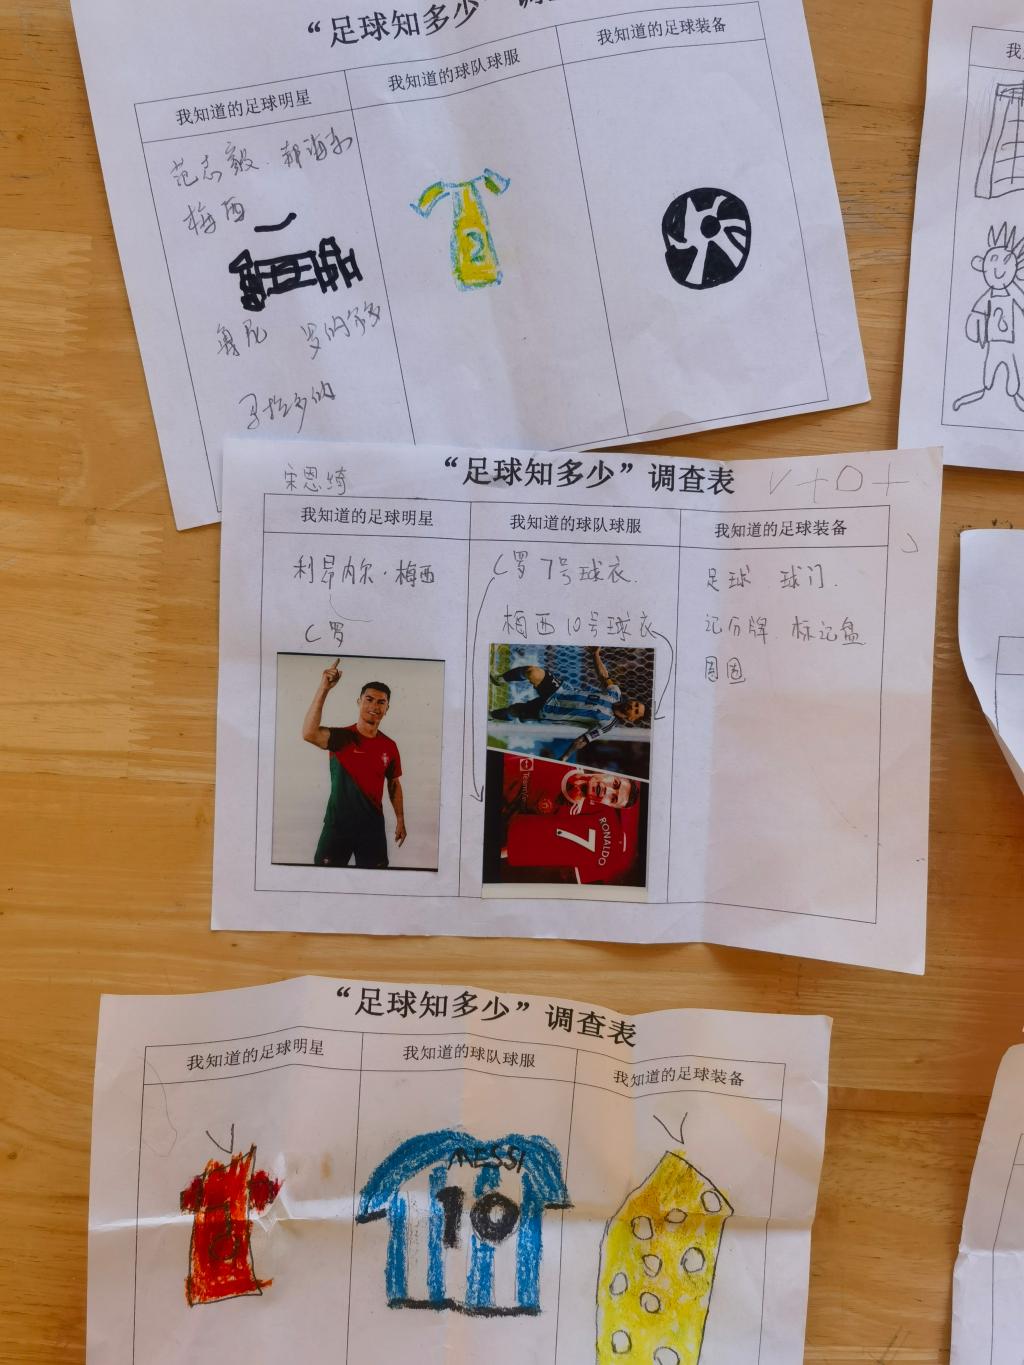 “足球知多少”调查
我知道的足球明星
我知道的球队球服
我知道的足球装备
范志毅. 郝海东
梅西
2
鲁尼
马拉多纳
宋恩绮
“足球知多少”调查表
我知道的足球明星
我知道的球队球服
我知道的足球装备
利昂内尔·梅西
C罗
C罗7号球衣.
梅西10号球衣
RONALDO
7
足球 球门.
记分牌. 标记盘
“足球知多少”调查表
我知道的足球明星
我知道的球队球服
我知道的足球装备
MESSI
10
我
2